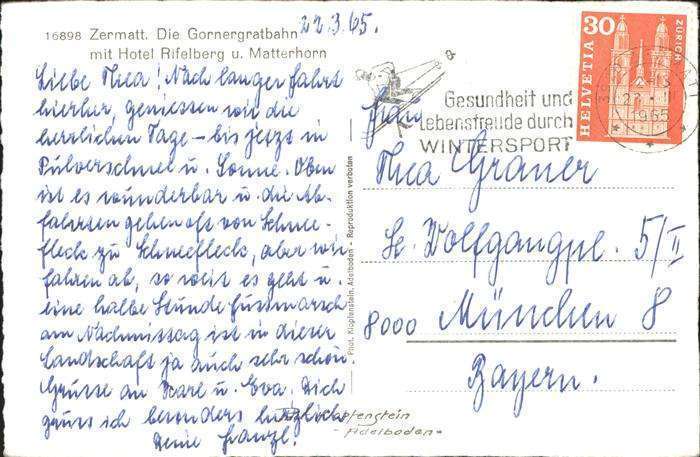 22.3.65.
16898 Zermatt. Die Gornergratbahn
mit Hotel Rifelberg u. Matterhorn
Liebe Thea! Nach langer Fahrt
hierher, geniessen wir die
herrlichen Tage – bis jetzt in
Pulverschnee u. Sonne. Oben
ist es wunderbar u. die Ab-
fahrten gehen oft von Schnee-
fleck zu Schneefleck, aber wir
fahren ab, so weit es geht u.
eine halbe Stunde Fussmarsch
am Nachmittag ist in dieser
Landschaft ja auch sehr schön.
Grüsse an Karl u. Eva. Dich
grüss ich besonders herzlich
Deine Franzl.
Phot. Klopfenstein, Adelboden - Reproduktion verboten
Gesundheit und
Lebensfreude durch
WINTERSPORT
HELVETIA 30 ZÜRICH
1965
Thea Graner
St. Wolfgangpl. 5/II
8000 München 8
Bayern.
Klopfenstein
- Adelboden -